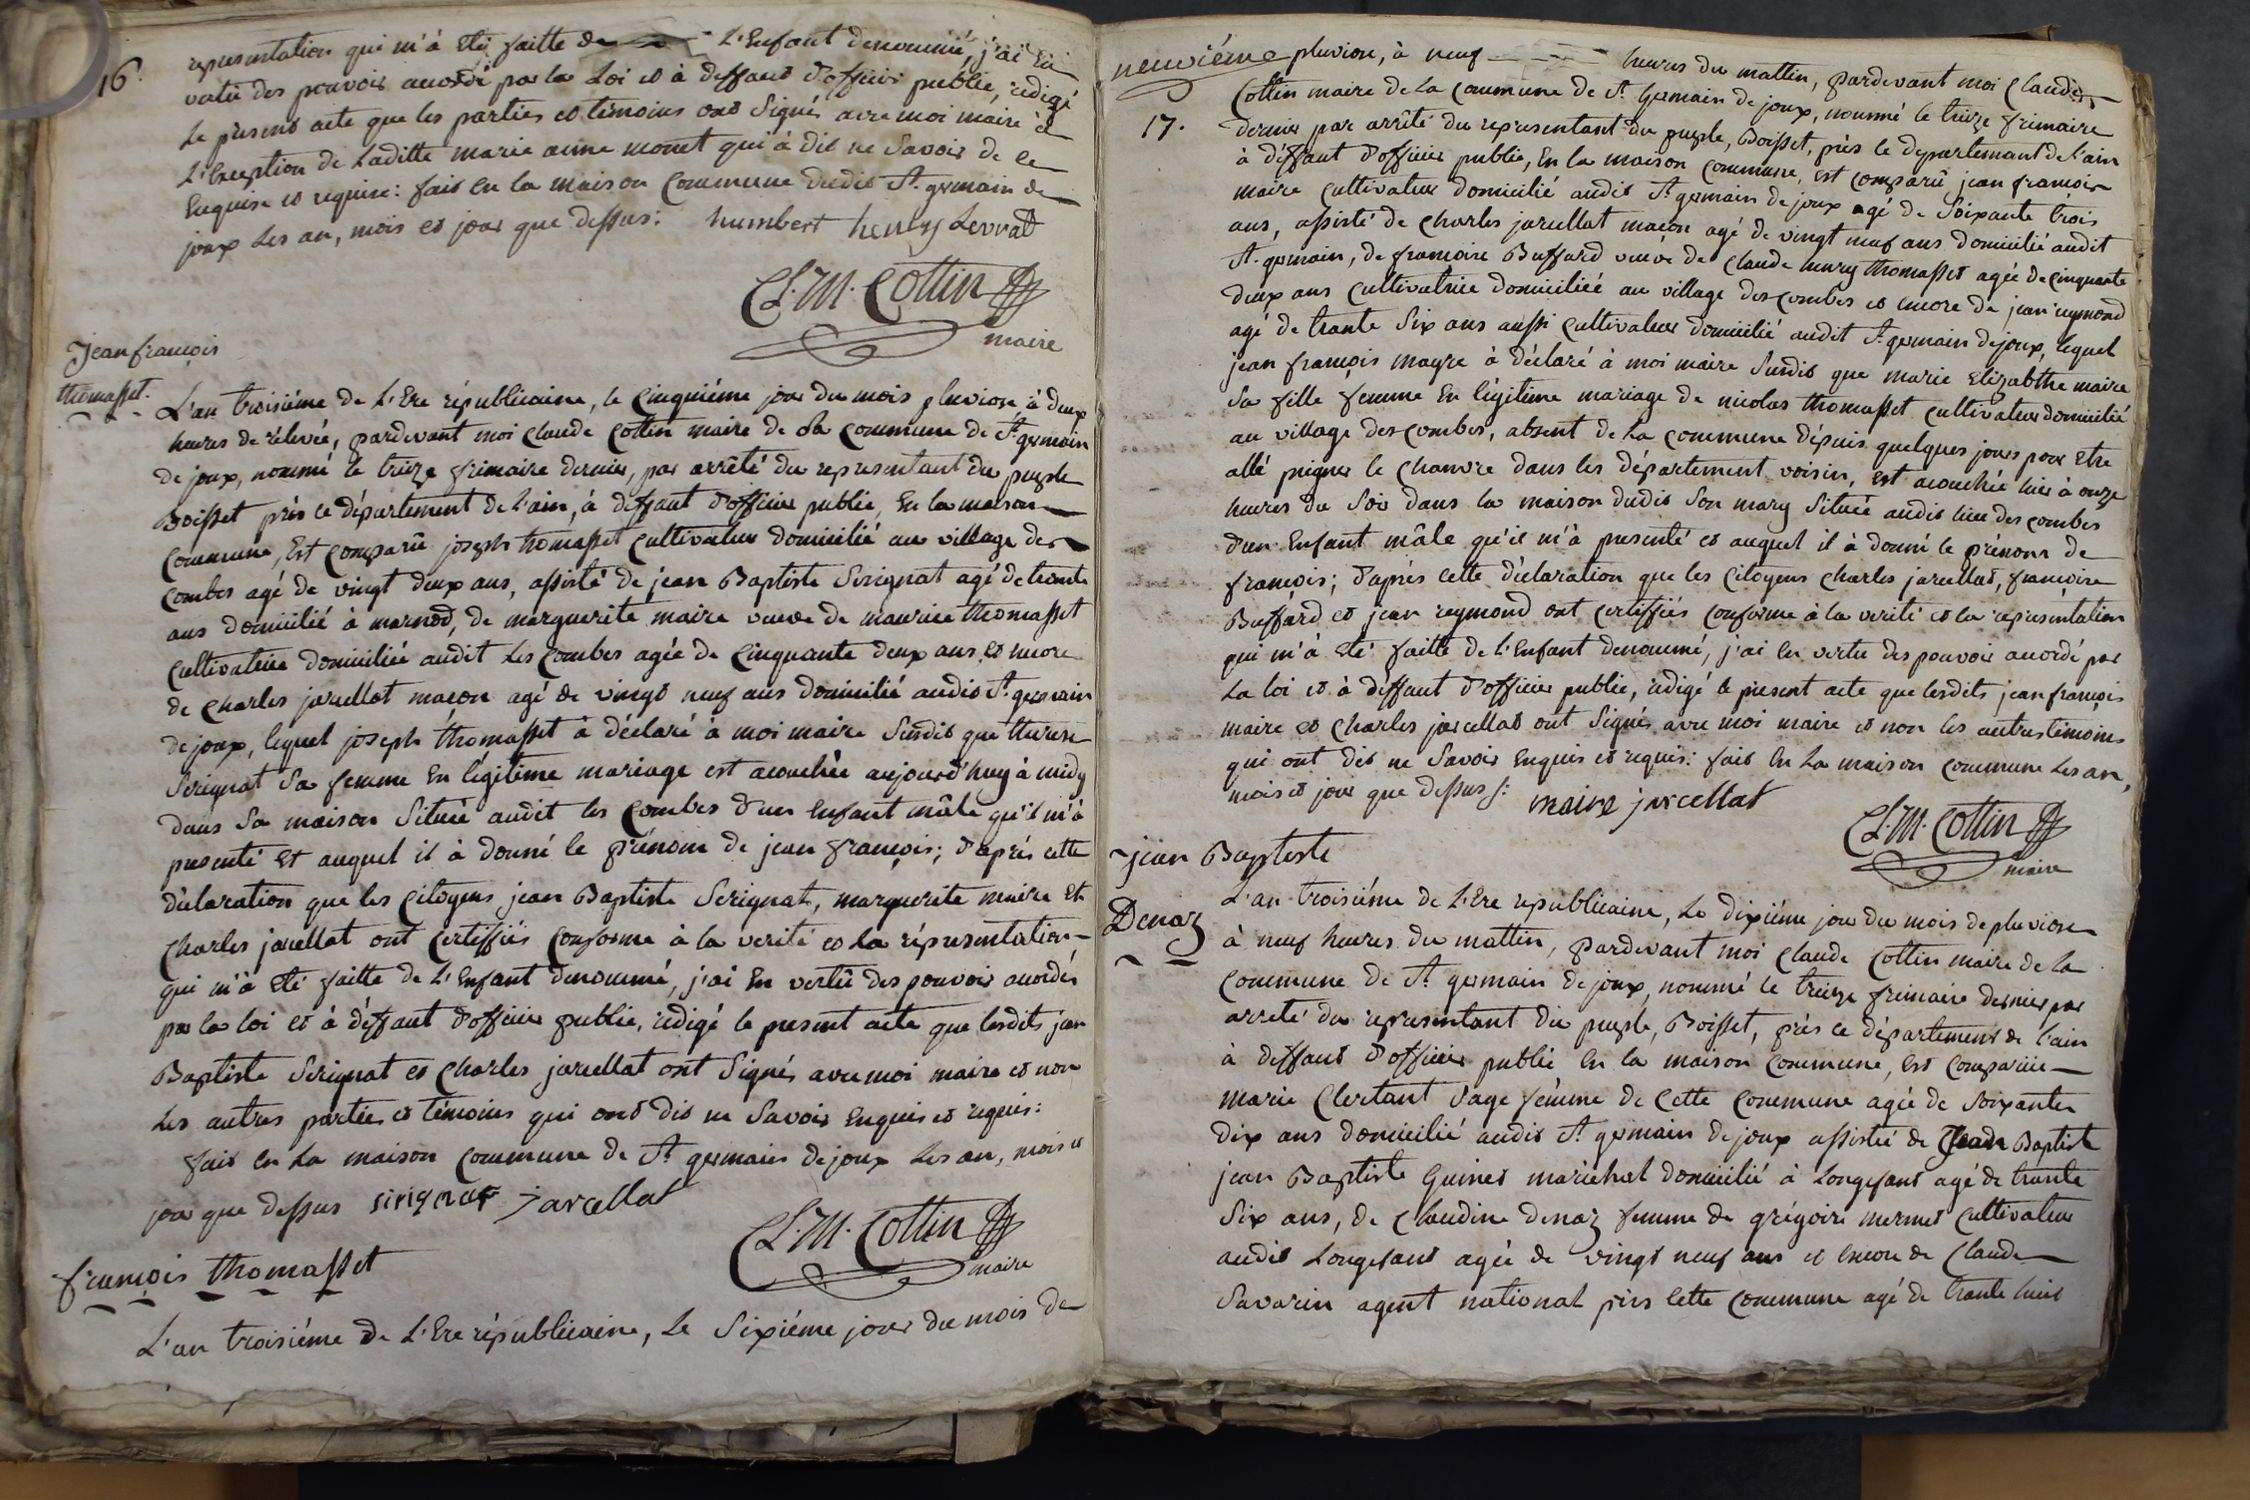 16.
representation qui m'à été faitte de L'Enfant denommé, j'ai En
vertu des pouvoirs accordé par la Loi et à deffaut d'officier public, rédigé
Le présent acte que les parties et témoins ont Signés avec moi maire à
L'Exception de Laditte marie anne monet qui à dit ne Savoir de ce
Enquise et requise: fait En la maison Commune dudit St. germain de
joux Les an, mois et jour que dessus: humbert henry Levrat
Cl. M. Cottin
maire
Jean françois
thomasset.
L'an troisiéme de L'Ere républicaine, le Cinquiéme jour du mois pluviose à deux
heures de rélevée, pardevant moi Claude Cottin maire de La commune de St germain
de joux, nommé le treize frimaire dernier, par arrêté du representant du peuple
Boisset près ce département de l'ain, à deffaut d'officier public, En la maison
Commune, Est comparû joseph thomasset Cultivateur domicilié au village des
Combes agé de vingt deux ans, assisté de jean Baptiste Serignat agé de trente
ans domicilié à marnod, de marguerite maire veuve de maurice thomasset
Cultivatrice domiciliée audit Les Combes agée de Cinquante deux ans et encore
de Charles jarcellat maçon agé de vingt neuf ans domicilié audit St. germain
de joux, lequel joseph thomasset à déclaré à moi maire Susdit que therese
Serignat Sa femme En légitime mariage est acouchée aujourd'huy à midy
dans Sa maison Située audit les Combes d'un Enfant mâle qu'il m'à
presenté Et auquel il à donné le prénom de jean françois; d'après cette
déclaration que les Citoyens jean Baptiste Serignat, marguerite maire Et
Charles jarcellat ont Certiffiés Conforme à la verité et La réprésentation
qui m'à été faitte de L'Enfant denommé, j'ai En vertû des pouvoirs accordés
par la loi et à déffaut d'officier public, rédigé le present acte que lesdits jean
Baptiste Serignat et Charles jarcellat ont Signés avec moi maire et non
Les autres parties et témoins qui ont dit ne Savoir Enquis et requis:
fait En La maison Commune de St. germain de joux Les an, mois et
jour que dessus sirignat jarcellat
Cl. M. Cottin
maire
françois thomasset
L'an troisiéme de L'Ere républicaine, Le Sixiéme jour du mois de
neuviéme pluviose, à neuf heures du mattin, pardevant moi Claude
17.
Cottin maire de La Commune de St. Germain de joux, nommé le treize frimaire
dernier par arrêté du representant du peuple, Boisset, près ce departemant de l'ain
à déffaut d'officier public, En la maison Commune, Est comparû jean françois
maire Cultivateur domicilié audit St. germain de joux agé de Soixante trois
ans, assisté de Charles jarcellat maçon agé de vingt neuf ans domicilié audit
St. germain, de françoise Buffard veuve de Claude henry thomasset agée de Cinquante
deux ans Cultivatrice domiciliée au village des Combes et encore de jean reymond
agé de trante Six ans aussi Cultivateur domicilié audit St. germain de joux, lequel
jean françois mayre à déclaré à moi maire Susdit que marie Elizabthe maire
Sa fille femme En légitime mariage de nicolas thomasset Cultivateur domicilié
au village des Combes, absent de La Commune dépuis quelques jours pour Etre
allé peigner le Chanvre dans les département voisin, Est acouchée hier à onze
heures du Soir dans la maison dudit Son mary Située audit lieu des Combes
d'un Enfant mâle qu'il m'à presenté et auquel il à donné le prénom de
françois; d'après cette déclaration que les Citoyens Charles jarcellat, françoise
Buffard et jean reymond ont Certiffiés Conforme à la verité et la représentation
qui m'à été faitte de L'Enfant denommé, j'ai En vertu des pouvoir accordé par
La loi et à déffaut d'officier public, rédigé le present acte que lesdits jean françois
maire et Charles jarcellat ont Signés avec moi maire et non les autres témoins
qui ont dit ne Savoir Enquis et requis: fait En La maison Commune Les an,
mois et jour que dessus: maire jarcellat
Cl. M. Cottin
maire
jean Baptiste
Denaz
L'an troisiéme de L'Ere republicaine, Le dixiéme jour du mois de pluviose
à neuf heures du mattin, pardevant moi Claude Cottin maire de La
Commune de St. germain de joux, nommé le treize frimaire dernier par
arreté du representant du peuple, Boisset, près ce département de l'ain
à deffaut d'officier public En la maison Commune, Est comparüe
marie Clertant Sage fémme de Cette Commune agée de Soixante
dix ans domicilié audit St. germain de joux assistée de Jean Baptiste
jean Baptiste Guinet maréchal domicilié à Longefant agé de trante
Six ans, de Claudine denaz femme de grégoire mermet Cultivateur
audit Longefant agée de vingt neuf ans et Encore de Claude
Savarin agent national près Cette Commune agé de trante huit